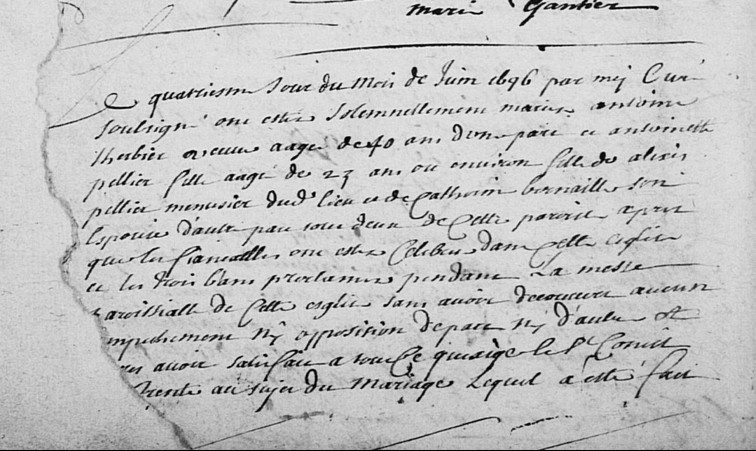 marie Gantier
Le quatriesme Jour du Mois de Juin 1696 par moy Curé
soubsigné ont esté solemnellement mariez antoine
therbier veuve aagé de 40 ans d'une part et antoinette
pellier fille aagé de 23 ans ou environ fille de alexis
pellier menusier dud lieu et de Catherin bernaille son
Espouse d'autre part tous deux de Cette paroisse apres
que les fiancailles ont esté Celebres dans Cette esglise
et les trois bans proclames pendant La messe
paroissialle de Cette esglise sans avoir decouvert aucun
empechement Ny opposition de part Ny d'autre et
avoir satisfait a tout Ce quexige le St Concil
Trente au sujet du Mariage Lequel a esté fait